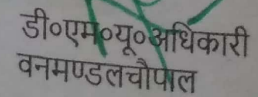 डी०एम०यू०अधिकारी
वनमण्डलचौपाल